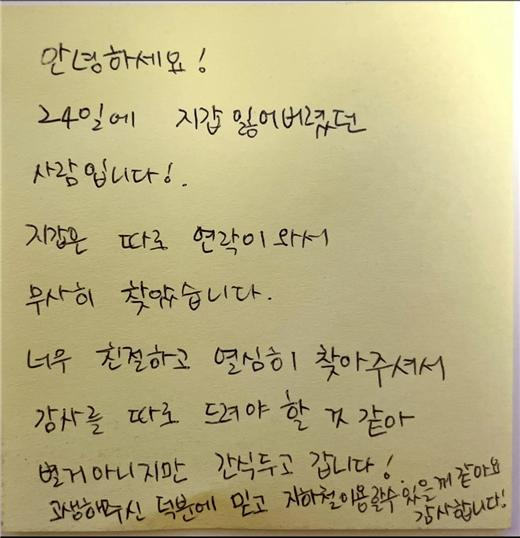 안녕하세요!
24일에 지갑 잃어버렸던
사람입니다!.
지갑은 따로 연락이 와서
무사히 찾았습니다.
너무 친절하고 열심히 찾아주셔서
감사를 따로 드려야 할 것 같아
별거아니지만 간식두고 갑니다!
고생해주신 덕분에 믿고 지하철이용할수 있을께 같아요
감사합니다!